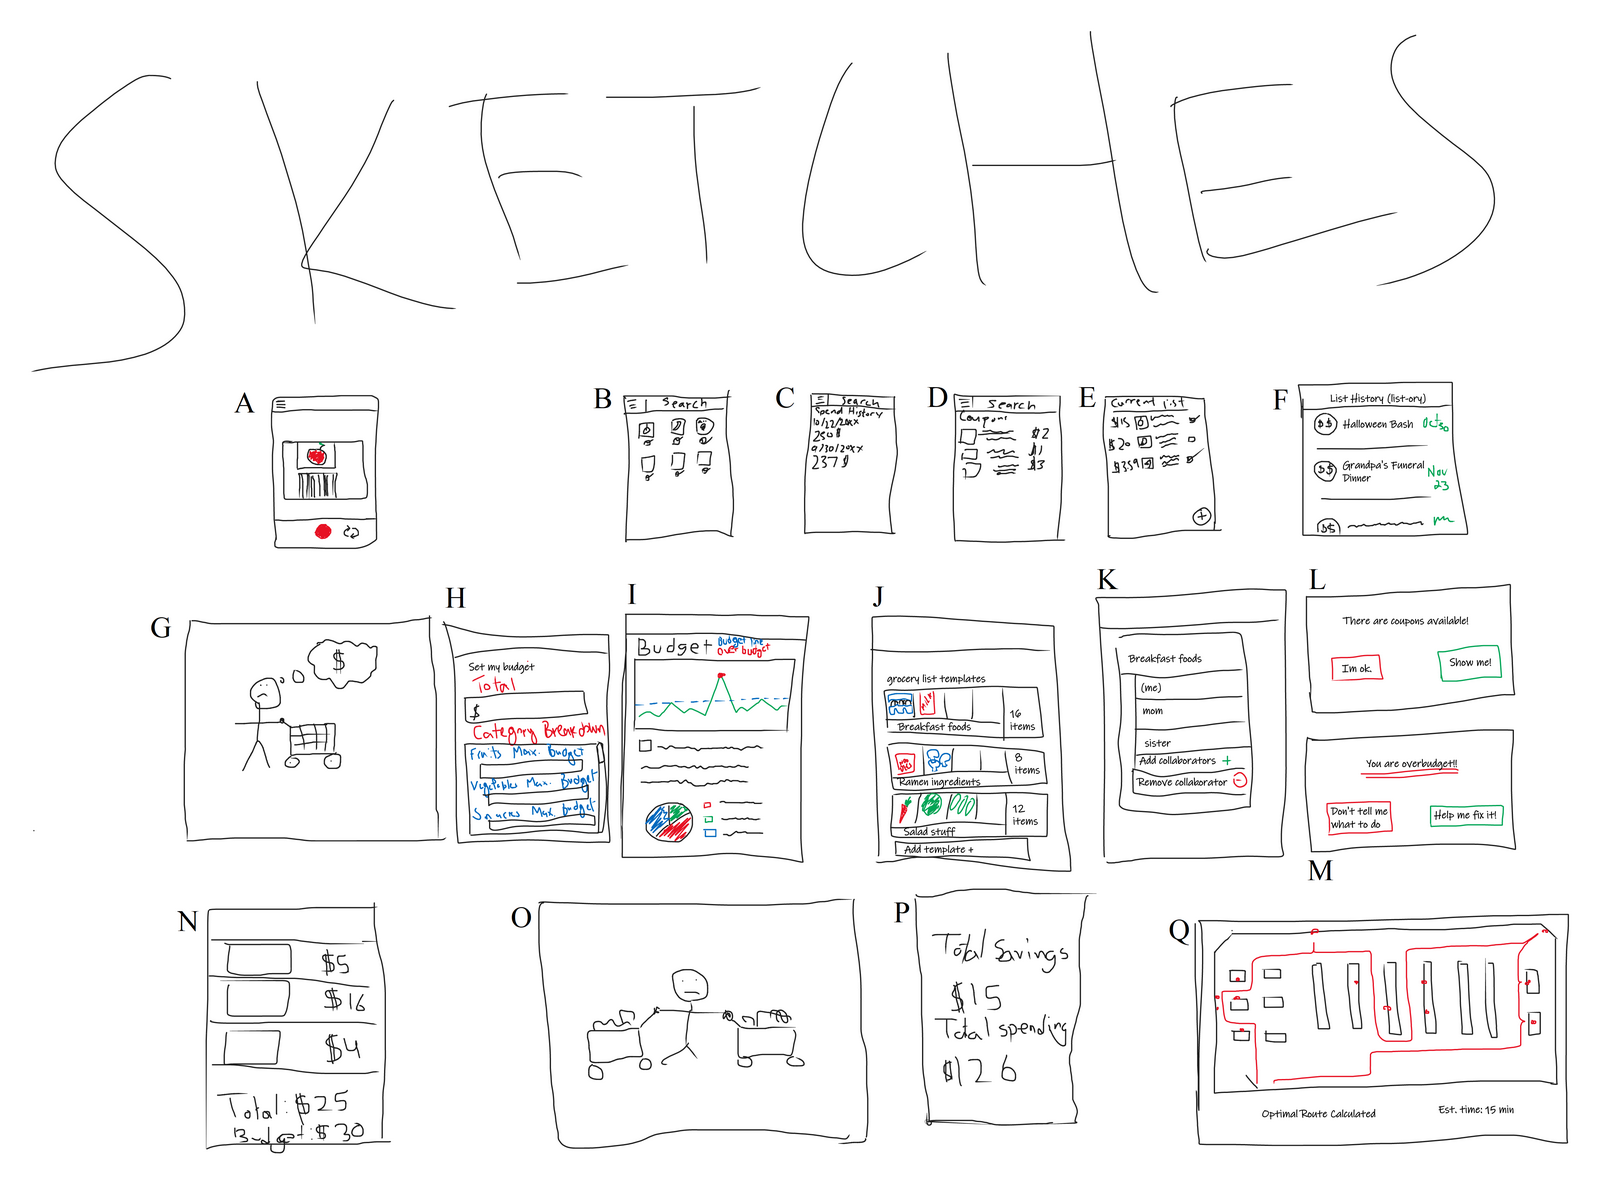 SKETCHES
A
B
Search
C
Search
Spend History
10/22/20xx
250$
9/30/20xx
237$
D
Search
Coupons
$2
$1
$3
E
Current list
$15
$20
$359
F
List History (list-ory)
$$ Halloween Bash Oct 30
$$ Grandpa's Funeral
Dinner
Nov
23
$$
G
$
H
Set my budget
Total
$
Category Breakdown
Fruits Max. Budget
Vegetables Max. Budget
Snacks Max. Budget
I
Budget
Budget line
Over budget
J
grocery list templates
milk
16
items
Breakfast foods
8
items
Ramen ingredients
12
items
Salad stuff
Add template +
K
Breakfast foods
(me)
mom
sister
Add collaborators +
Remove collaborator -
L
There are coupons available!
I'm ok.
Show me!
You are overbudget!!
Don't tell me
what to do
Help me fix it!
M
N
$5
$16
$4
Total: $25
Budget: $30
O
P
Total Savings
$15
Total spending
$126
Q
Optimal Route Calculated
Est. time: 15 min